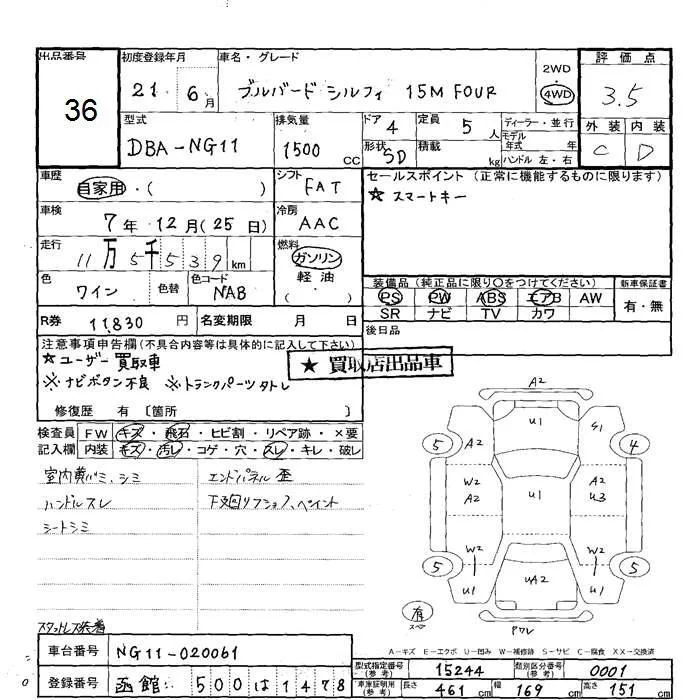 出品番号
36
初度登録年月
21 6月
車名・グレード
ブルバード シルフィ 15M FOUR
2WD
4WD
評価点
3.5
外装 内装
C D
型式
DBA-NG11
排気量
1500 CC
ドア 4
形状 SD
定員 5 人
積載 kg
ディーラー・並行
モデル年式 年
ハンドル 左・右
車歴
自家用・( )
シフト
FAT
セールスポイント (正常に機能するものに限ります)
★ スマートキー
車検
7年 12月(25日)
冷房
AAC
走行
11万5千539 km
燃料
ガソリン
軽油
色
ワイン
色替
色コード
NAB
装備品 (純正品に限り〇をつけてください)
PS PW ABS エアB AW
SR ナビ TV カワ
新車保証書
有・無
R券 11,830 円
名変期限 月 日
後日品
注意事項申告欄(不具合内容等は具体的に記入して下さい)
★ユーザー買取車
※ナビボタン不良 ※トランクパーツタトレ
★ 買取店出品車
修復歴 有〔箇所 〕
検査員記入欄
FW キズ・飛石・ヒビ割・リペア跡・×要
内装 キズ・汚レ・コゲ・穴・スレ・キレ・破レ
室内黄バミ、シミ
ハンドルスレ
シートシミ
エンドパネル歪
下廻リフショク、ペイント
A2
U1
5 A2
S1 4
W2
A2
U1
A2
U3
W2
W2
5 U1
UA2
U1 5
有
スペア
PWレ
スタットレス装着
A-キズ E-エクボ U-凹み W-補修跡 S-サビ C-腐食 XX-交換済
車台番号 NG11-020061
登録番号 函館 500 は 1478
型式指定番号(参考) 15244
類別区分番号(参考) 0001
車庫証明用(参考) 長さ 461 cm 幅 169 cm 高さ 151 cm